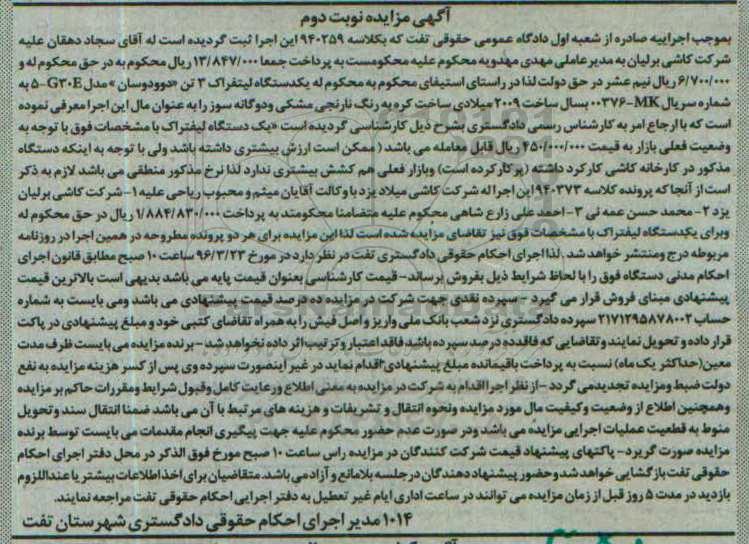 آگهی مزایده نوبت دوم
بموجب اجراییه صادره از شعبه اول دادگاه عمومی حقوقی تفت که بکلاسه ۹۴۰۲۵۹ این اجرا ثبت گردیده است له آقای سجاد دهقان علیه
شرکت کاشی برلیان به مدیر عاملی مهدی مهدویه محکوم علیه محکومست به پرداخت جمعا ۱۳/۸۴۷/۰۰۰ ریال محکوم به در حق محکوم له و
۶/۷۰۰/۰۰۰ ریال نیم عشر در حق دولت لذا در راستای استیفای محکوم به محکوم له یکدستگاه لیتفراک ۳ تن «دوودوسان» مدل G۳۰E-۵ به
شماره سریال MK-۰۰۳۷۶ بسال ساخت ۲۰۰۹ میلادی ساخت کره به رنگ نارنجی مشکی ودوگانه سوز را به عنوان مال این اجرا معرفی نموده
است که با ارجاع امر به کارشناس رسمی دادگستری بشرح ذیل کارشناسی گردیده است «یک دستگاه لیفتراک با مشخصات فوق با توجه به
وضعیت فعلی بازار به قیمت ۴۵۰/۰۰۰/۰۰۰ ریال قابل معامله می باشد ( ممکن است ارزش بیشتری داشته باشد ولی با توجه به اینکه دستگاه
مذکور در کارخانه کاشی کارکرد داشته (پرکار کرده است) وبازار فعلی هم کشش بیشتری ندارد لذا نرخ مذکور منطقی می باشد لازم به ذکر
است از آنجا که پرونده کلاسه ۹۴۰۳۷۳ این اجرا له شرکت کاشی میلاد یزد با وکالت آقایان میثم و محبوب ریاحی علیه ۱- شرکت کاشی برلیان
یزد ۲- محمد حسن عمه نی ۳- احمد علی زارع شاهی محکوم علیه متضامنا محکومند به پرداخت ۱/۸۸۴/۸۳۰/۰۰۰ ریال در حق محکوم له
وبرای یکدستگاه لیفتراک با مشخصات فوق نیز تقاضای مزایده شده است لذا این مزایده برای هر دو پرونده مطروحه در همین اجرا در روزنامه
مربوطه درج ومنتشر خواهد شد . لذا اجرای احکام حقوقی دادگستری تفت در نظر دارد در مورخ ۹۶/۳/۲۳ ساعت ۱۰ صبح مطابق قانون اجرای
احکام مدنی دستگاه فوق را با لحاظ شرایط ذیل بفروش برساند- قیمت کارشناسی بعنوان قیمت پایه می باشد بدیهی است بالاترین قیمت
پیشنهادی مبنای فروش قرار می گیرد - سپرده نقدی جهت شرکت در مزایده ده درصد قیمت پیشنهادی می باشد ومی بایست به شماره
حساب ۲۱۷۱۲۹۵۸۷۸۰۰۲ سپرده دادگستری نزد شعب بانک ملی واریز و اصل فیش را به همراه تقاضای کتبی خود و مبلغ پیشنهادی در پاکت
قرار داده و تحویل نمایند وتقاضایی که فاقد ده درصد سپرده باشد فاقد اعتبار و ترتیب اثر داده نخواهد شد- برنده مزایده می بایست ظرف مدت
معین(حداکثر یک ماه) نسبت به پرداخت باقیمانده مبلغ پیشنهادی اقدام نماید در غیر اینصورت سپرده وی پس از کسر هزینه مزایده به نفع
دولت ضبط ومزایده تجدیدمی گردد - از نظر اجرا اقدام به شرکت در مزایده به معنی اطلاع ورعایت کامل وقبول شرایط ومقررات حاکم بر مزایده
وهمچنین اطلاع از وضعیت وکیفیت مال مورد مزایده ونحوه انتقال و تشریفات و هزینه های مرتبط با آن می باشد ضمنا انتقال سند وتحویل
منوط به قطعیت عملیات اجرایی مزایده می باشد ودر صورت عدم حضور محکوم علیه جهت پیگیری انجام مقدمات می بایست توسط برنده
مزایده صورت گیرد- پاکتهای پیشنهاد قیمت شرکت کنندگان در مزایده راس ساعت ۱۰ صبح مورخ فوق الذکر در محل دفتر اجرای احکام
حقوقی تفت بازگشایی خواهد شد وحضور پیشنهاد دهندگان در جلسه بلامانع و آزاد می باشد. متقاضیان برای اخذ اطلاعات بیشتر یا عنداللزوم
بازدید در مدت ۵ روز قبل از زمان مزایده می توانند در ساعت اداری ایام غیر تعطیل به دفتر اجرایی احکام حقوقی تفت مراجعه نمایند.
۱۰۱۴ مدیر اجرای احکام حقوقی دادگستری شهرستان تفت